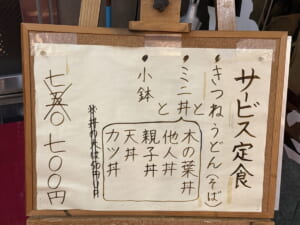 サービス定食
・きつねうどん(そば
と
・ミニ丼
木の葉丼
他人丼
親子丼
天丼
カツ丼
と
・小鉢
七五〇 七〇〇円